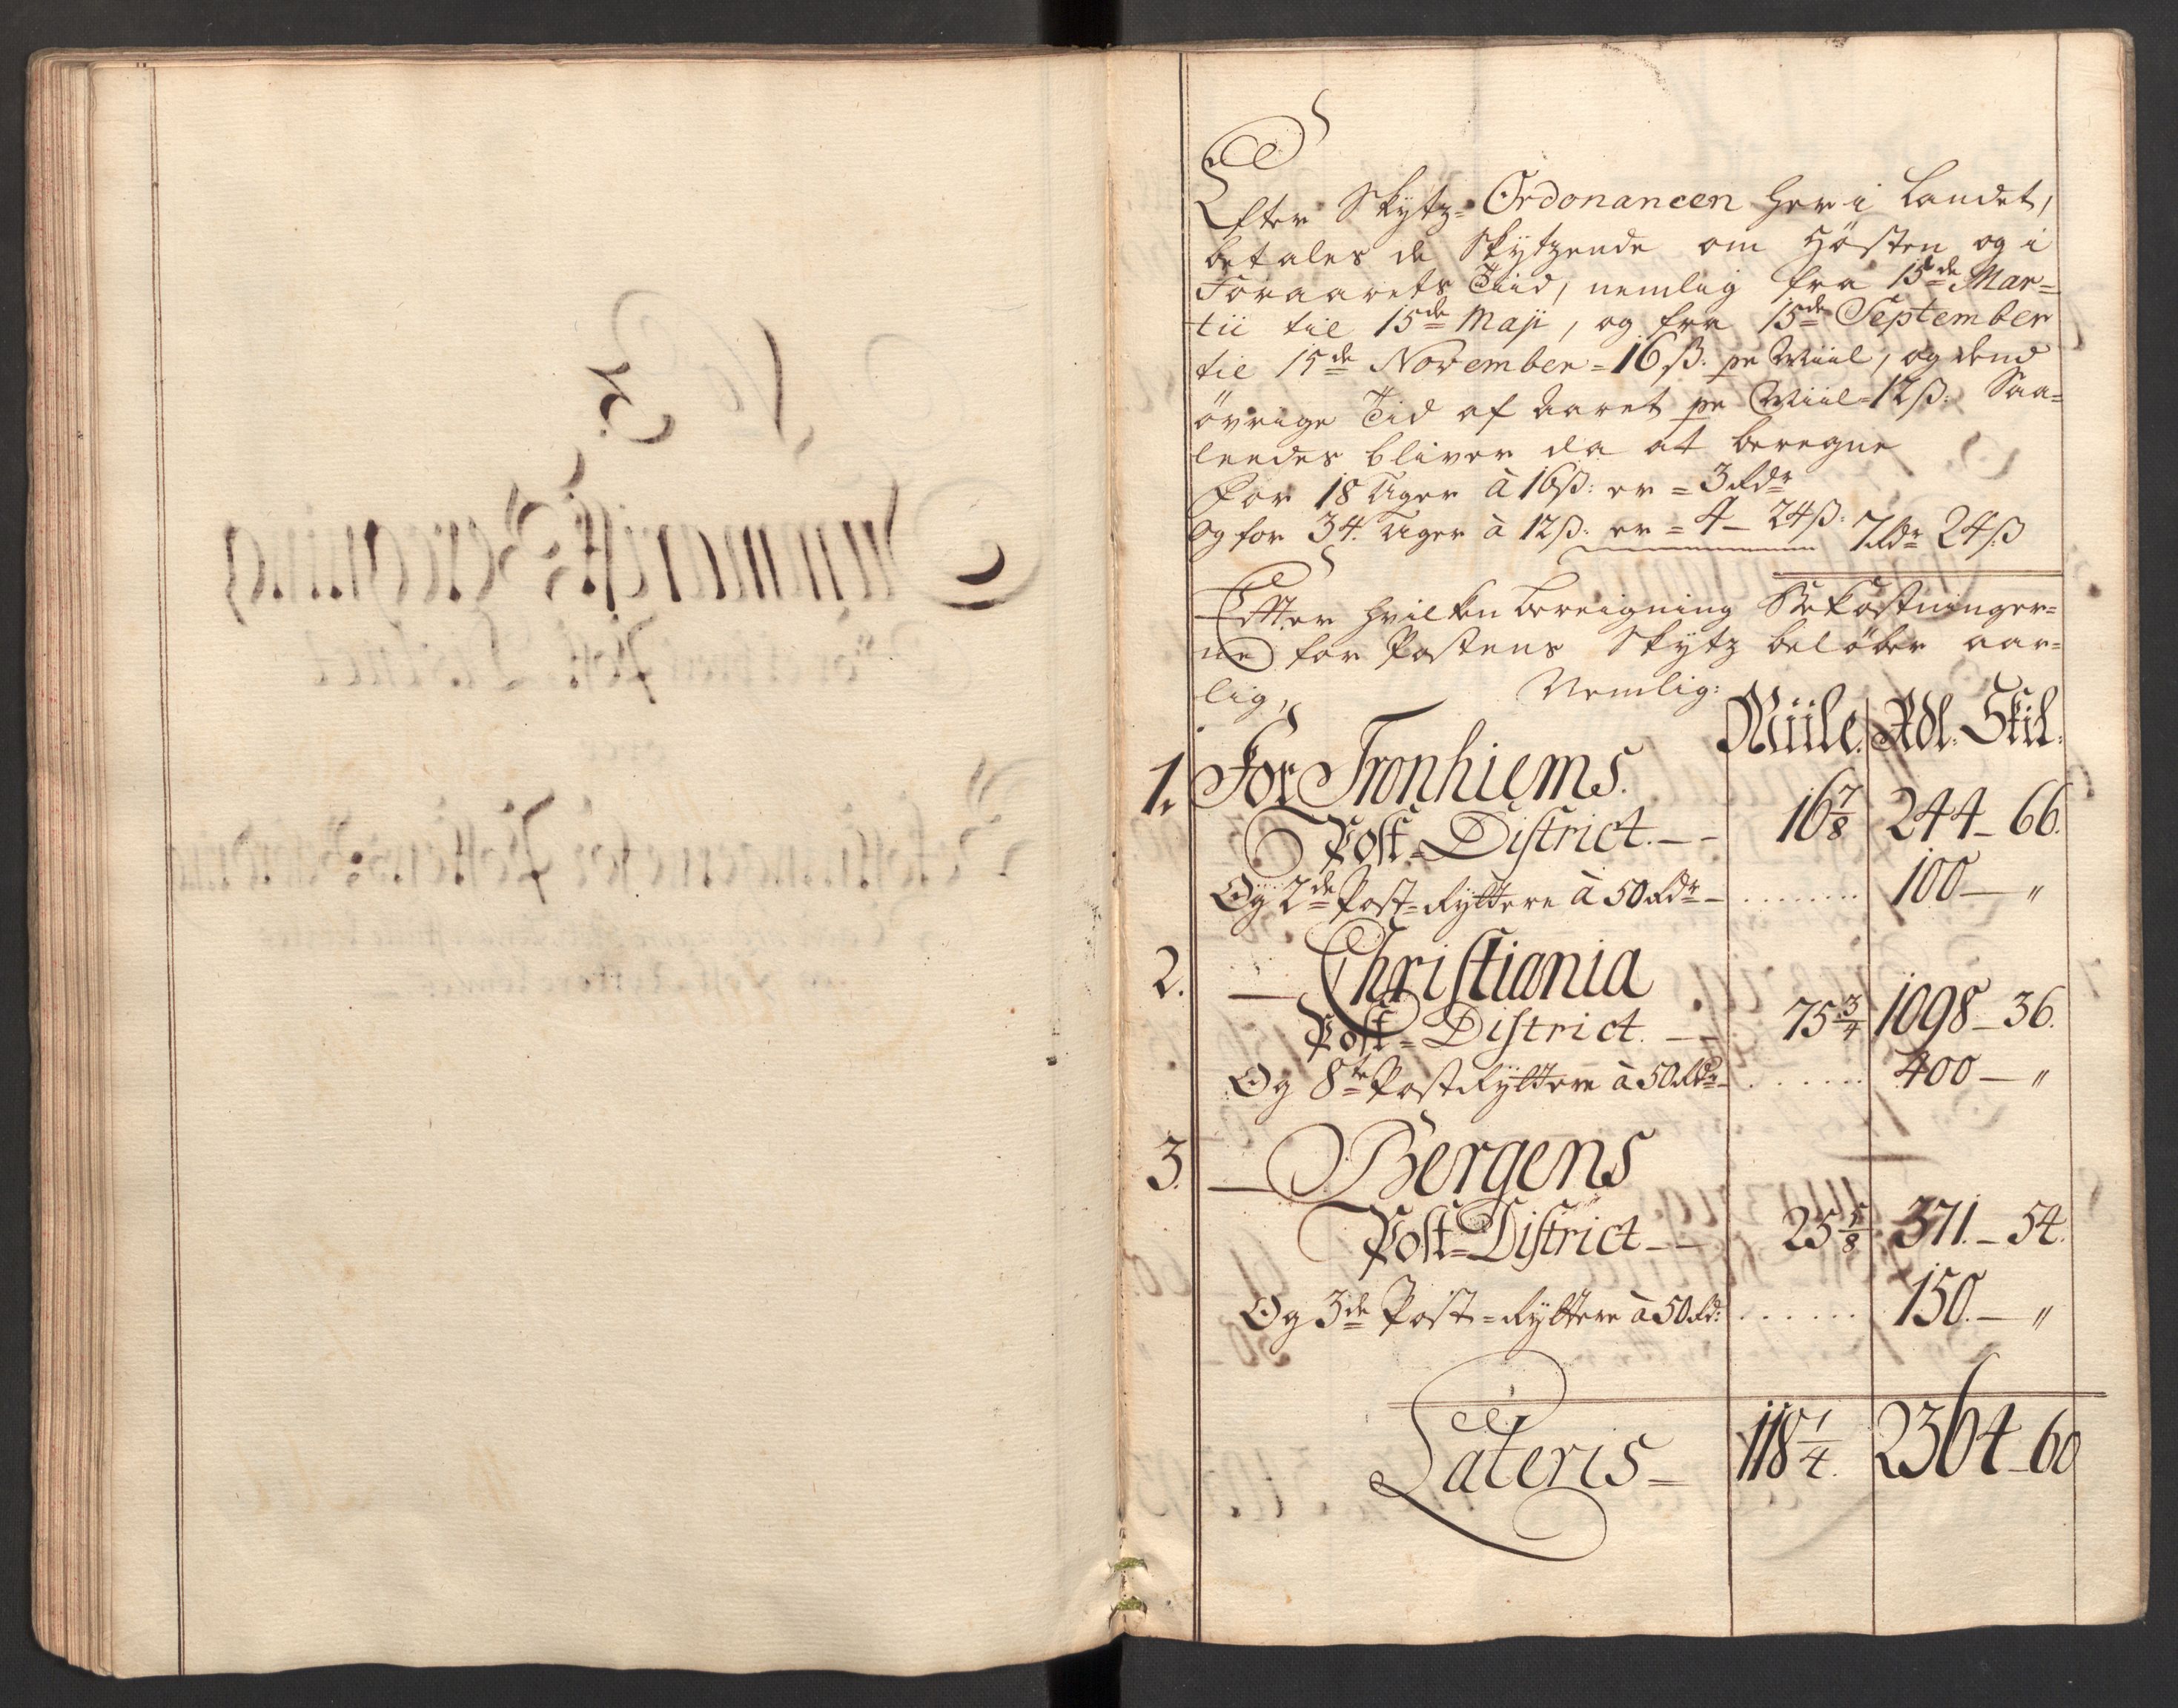 Efter Skytz-Ordonancen her i Landet,
betales de Skytzende om Hösten og i
Foraarets Tiid, nemlig fra 15de Mar=
tii til 15de Maji, og fra 15de September
til 15de November = 16 ß. pr Miil, og dend
övrige Tid af Aaret pr Miil = 12 ß. Saa=
leedes bliver da at beregne
For 18 Uger à 16 ß: er = 3 Rdr
Og for 34. Uger à 12 ß: er = 4 – 24 ß: 7 Rdr 24 ß
Efter hvilken Bereigning Bekostninger=
ne for Postens Skytz belöber aar=
lig, Nemlig:
Miile. Rdl. Skil.
1. For Tronhiems.
Post=District. — 16 7/8 244 – 66.
Og 2de Post=Ryttere à 50 Rdr – ....... 100 — "
2. — Christiania
Post=District. — 75 3/4 1098 – 36.
Og 8te Post Ryttere à 50 Rdr – ...... 400 — "
3. — Bergens
Post=District — 25 5/8 371. – 54.
Og 3de Post=Ryttere à 50 Rd: ...... 150. — "
Lateris = 118 1/4. 2364 – 60